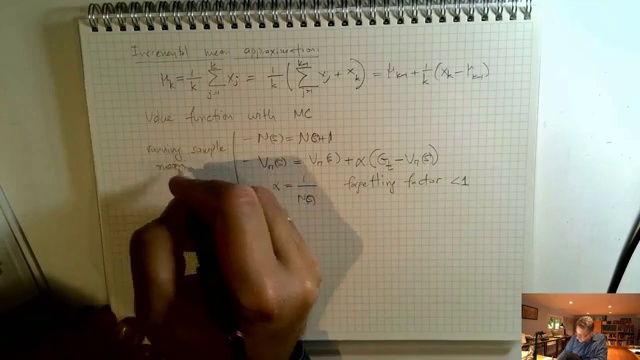 Incremental mean approximation:
μ_k = 1/k Σ_{j=1}^{k} x_j = 1/k ( Σ_{j=1}^{k-1} x_j + x_k ) = μ_{k-1} + 1/k (x_k − μ_{k-1})
Value function with MC
running sample mean
− N(S) = N(S)+1
− V_π(S) = V_π(S) + α (G_t − V_π(S))
α = 1/N(S) forgetting factor <1